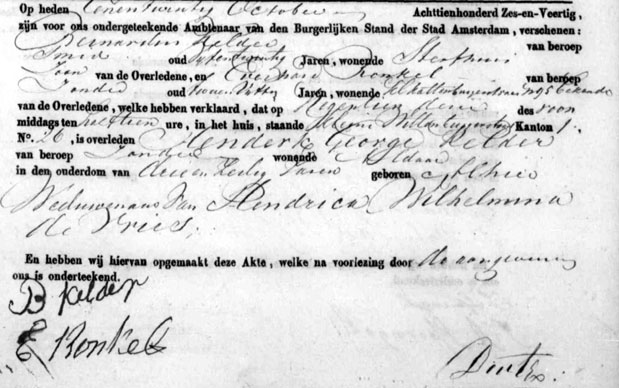 Op heden eenentwintig October Achttienhonderd Zes-en-Veertig,
zijn voor ons ondergeteekende Ambtenaar van den Burgerlijken Stand der Stad Amsterdam, verschenen:
Bernardus Kelder van beroep
Smid oud Jaren, wonende Sterfhuis
Zoon van de Overledene, en Ronkel van beroep
oud Jaren, wonende bekende
van de Overledene, welke hebben verklaard, dat op Negentien dezer des voor
middags ten ure, in het huis, staande Kleine Kanton 1.
No. 26, is overleden Henderk George Kelder
van beroep wonende Aldaar
in den ouderdom van Drie en Zestig Jaren geboren Alhier
Weduwenaar van Hendrica Wilhelmina
de Vries.
En hebben wij hiervan opgemaakt deze Akte, welke na voorlezing door de aangevers
ons is onderteekend.
B Kelder
E Ronkel